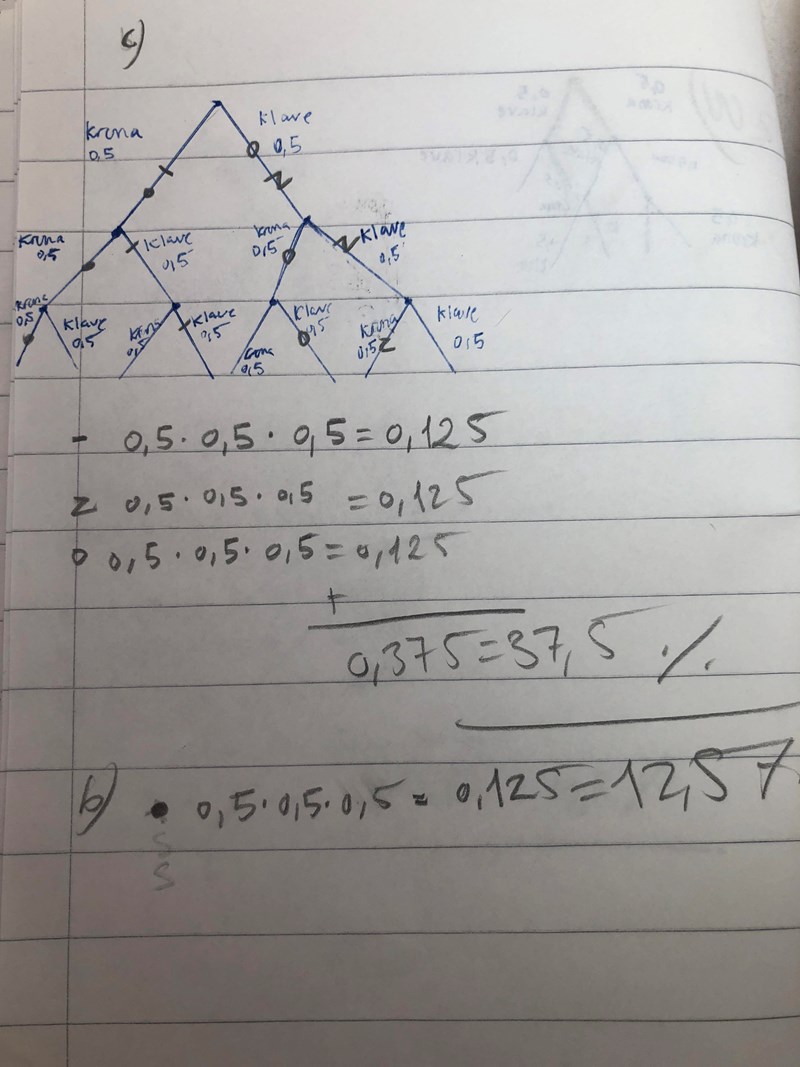 c)
Krona Klave
0,5 0,5
Krona Klave Krona Klave
0,5 0,5 0,5 0,5
Krona Klave Krona Klave Krona Klave Krona Klave
0,5 0,5 0,5 0,5 0,5 0,5 0,5 0,5
- 0,5 · 0,5 · 0,5 = 0,125
z 0,5 · 0,5 · 0,5 = 0,125
o 0,5 · 0,5 · 0,5 = 0,125
+
0,375 = 37,5 %
b) • 0,5 · 0,5 · 0,5 = 0,125 = 12,5%